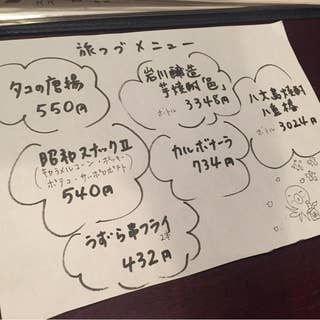 旅っづメニュー
タコの唐揚
550円
岩川醸造
芋焼酎「邑」
ボトル 3348円
八丈島焼酎
八重椿
ボトル 3024円
昭和スナックⅡ
(キャラメルコーン・ポッキー
ポテチュー・サーポロポテト)
540円
カルボナーラ
734円
うずら串フライ
2本
432円